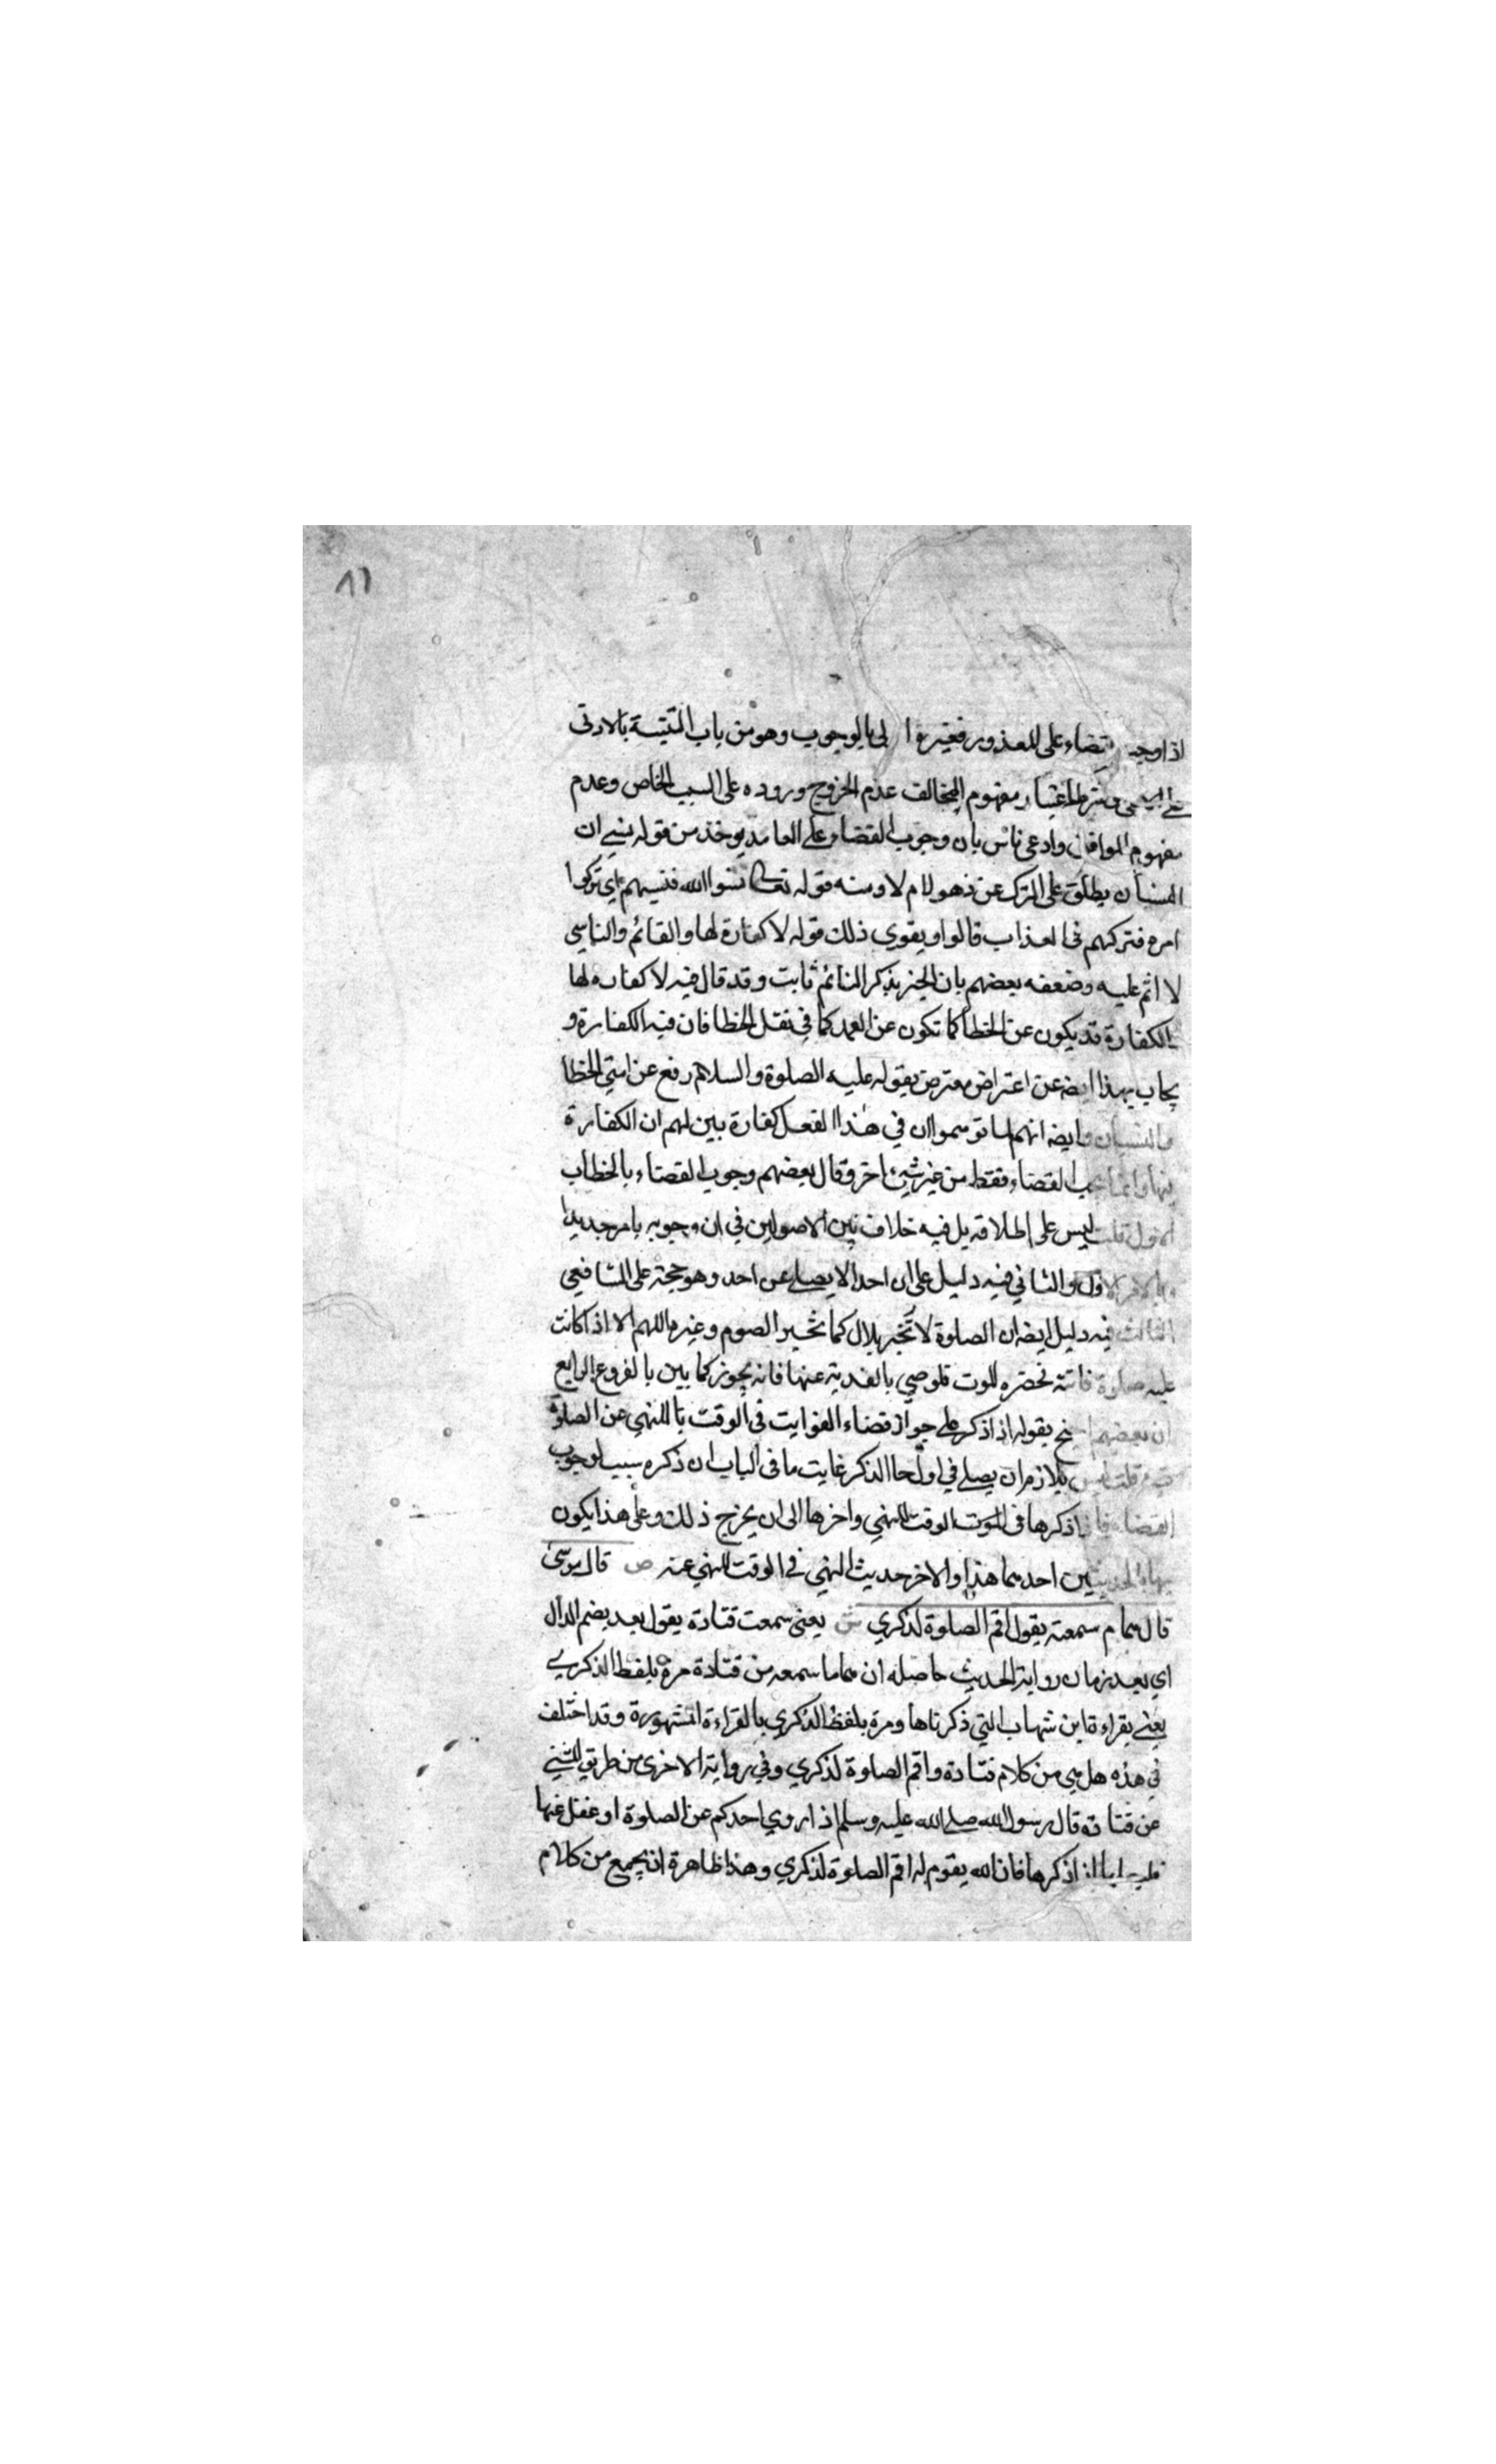 ٨١
اذا وجب القضاء على المعذور فغيره اولى بالوجوب وهو من باب التنبيه بالادنى
على الاعلى وشرط اعتبار مفهوم المخالف عدم الخروج وروده على السبب الخاص وعدم
مفهوم الموافق وادعى ناس بان وجوب القضاء على العامد يوخذ من قوله نسي ان
النسيان يطلق على الترك عن ذهول ام لا ومنه قوله تعالى نسوا الله فنسيهم اي تركوا
امره فتركهم في العذاب قالوا ويقوي ذلك قوله لا كفارة لها والقائم والناسي
لا اثم عليه وضعفه بعضهم بان الخبر بذكر النائم ثابت وقد قال فيه لا كفاره لها
الكفارة قد يكون عن الخطأ كما تكون عن العمد كما في نقتل الخطا فان فيه الكفارة و
يجاب بهذا ايضه عن اعتراض معترض بقوله عليه الصلوة والسلام رفع عن امتي الخطا
والنسيان وايضه انهم لما توهموا ان في هذا الفعل كفارة بين لهم ان الكفارة
فيها وانما يجب القضاء فقط من غير شيء اخر وقال بعضهم وجوب القضاء بالخطاب
الاول قلت ليس على اطلاقه بل فيه خلاف بين الاصولين في ان وجوبه بامر جديد ا
وبالامر الاول والثاني فيه دليل على ان احدا لا يصلي عن احد وهو حجة على الشافعي
الثالث فيه دليل ايضه ان الصلوة لا تجبر بلال كما تجبر الصوم وغيره اللهم الا اذا كانت
عليه صلوة فائتة تحضره الموت فلوصي بالفدية عنها فانه يجوز كما بين بالفروع الرابع
ان بعضهم احتج بقوله اذا ذكر على جواز قضاء الفوايت في الوقت بالنهي عن الصلوة
فيه قلت ليس بلازم ان يصلي في اول حا الذكر غايت ما في الباب ان ذكره سبب لوجوب
القضاء فاذا ذكرها في الوقت النهي واخرها الى ان يخرج ذلك وعلى هذا يكون
بهاذ الحديثين احدهما هذا والاخر حديث النهي في الوقت النهي عنه ص قال موسى
قال همام سمعته يقول اقم الصلوة لذكري ش يعني سمعت قتادة يقول بعد بضم الدال
اي بعد زمان رواية الحديث حاصله ان هماما سمعه من قتادة مرة بلفظ الذكري
يعني بقراءة ابن شهاب التي ذكرناها ومرة بلفظ الذكري بالقراءة المشهورة وقد اختلف
في هذه هل هي من كلام قتادة واقم الصلوة لذكري وفي رواية الاخرى من طريق
عن قتادة قال رسول الله صلى الله عليه وسلم اذا روي احدكم عن الصلوة او غفل عنها
اذا ذكرها فان الله يقوم له اقم الصلوة لذكري وهذا ظاهرة ان يجمع من كلام